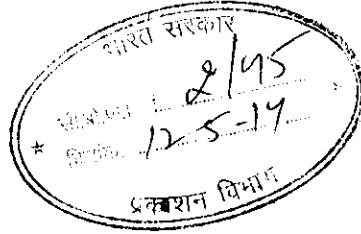 भारत सरकार
2/45
दिनांक 12-5-14
* *
प्रकाशन विभाग